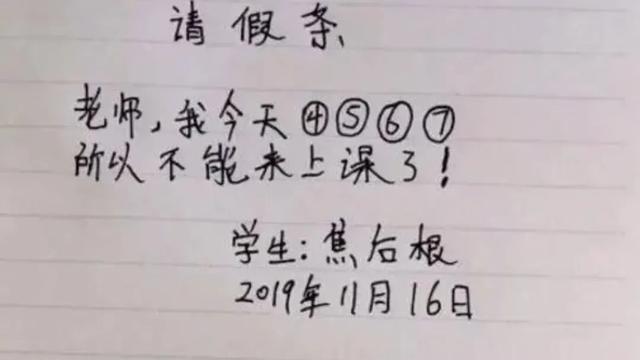 请假条
老师,我今天④⑤⑥⑦
所以不能来上课了!
学生:焦后根
2019年11月16日